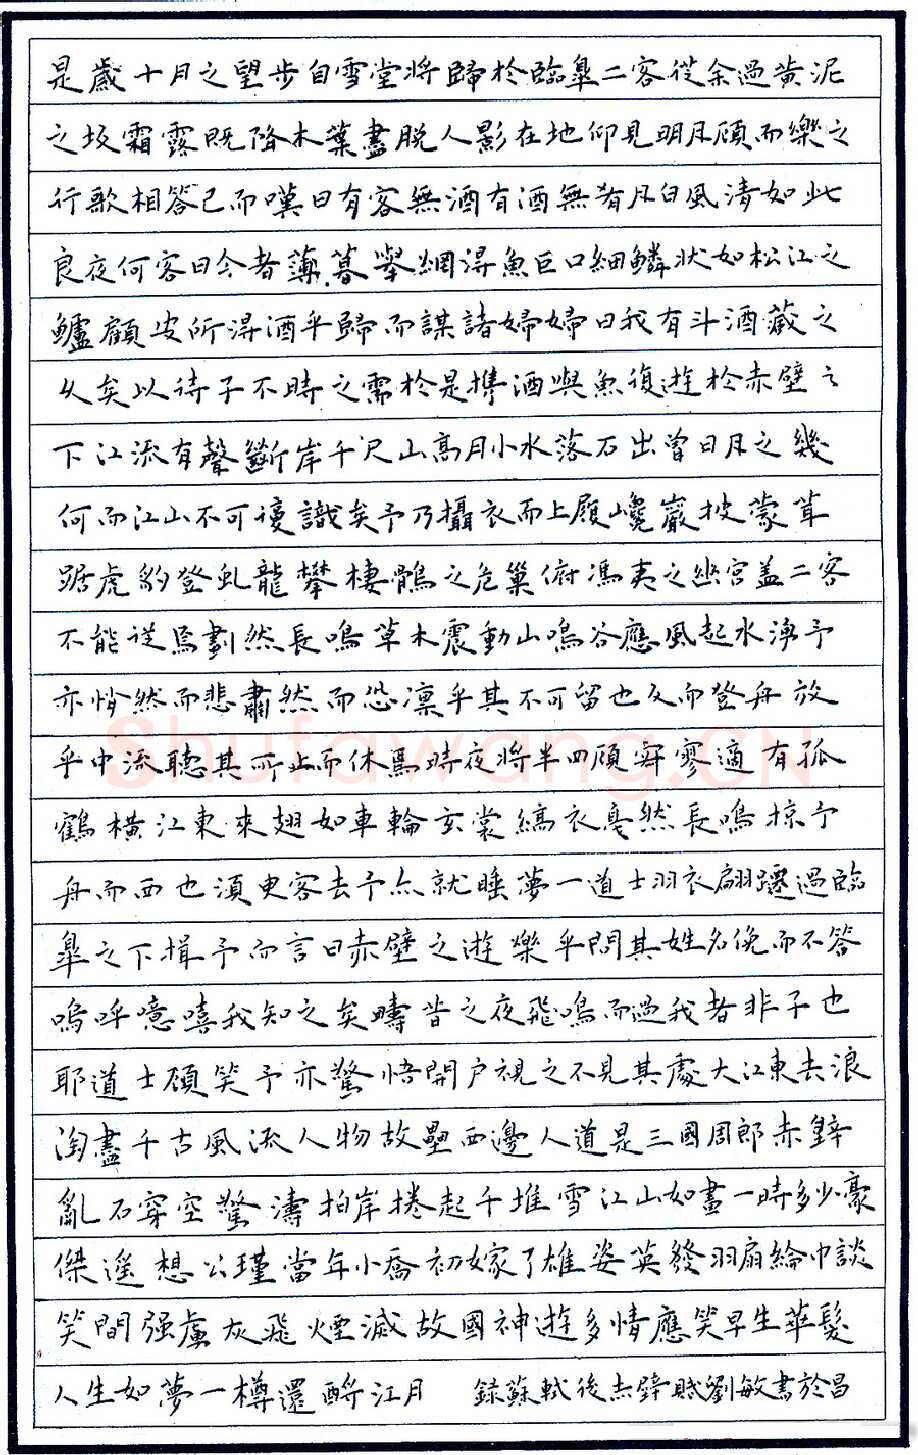 是歲十月之望步自雪堂將歸於臨皐二客從余過黃泥
之坂霜露既降木葉盡脫人影在地仰見明月顧而樂之
行歌相答已而嘆曰有客無酒有酒無肴月白風清如此
良夜何客曰今者薄暮舉網得魚巨口細鱗狀如松江之
鱸顧安所得酒乎歸而謀諸婦婦曰我有斗酒藏之
久矣以待子不時之需於是携酒與魚復遊於赤壁之
下江流有聲斷岸千尺山高月小水落石出曾日月之幾
何而江山不可復識矣予乃攝衣而上履巉巖披蒙茸
踞虎豹登虬龍攀棲鶻之危巢俯馮夷之幽宮盖二客
不能從焉劃然長鳴草木震動山鳴谷應風起水湧予
亦悄然而悲肅然而恐凛乎其不可留也反而登舟放
乎中流聽其所止而休焉時夜將半四顧寂寥適有孤
鶴橫江東來翅如車輪玄裳縞衣戛然長鳴掠予
舟而西也須臾客去予亦就睡夢一道士羽衣翩躚過臨
皐之下揖予而言曰赤壁之遊樂乎問其姓名俛而不答
嗚呼噫嘻我知之矣疇昔之夜飛鳴而過我者非子也
耶道士顧笑予亦驚悟開户視之不見其處大江東去浪
淘盡千古風流人物故壘西邊人道是三國周郎赤壁
亂石穿空驚濤拍岸捲起千堆雪江山如畫一時多少豪
傑遥想公瑾當年小喬初嫁了雄姿英發羽扇綸巾談
笑間强虜灰飛煙滅故國神遊多情應笑早生華髮
人生如夢一樽還酹江月 録蘇軾後赤壁賦劉敏書於昌
Shufawang.CN